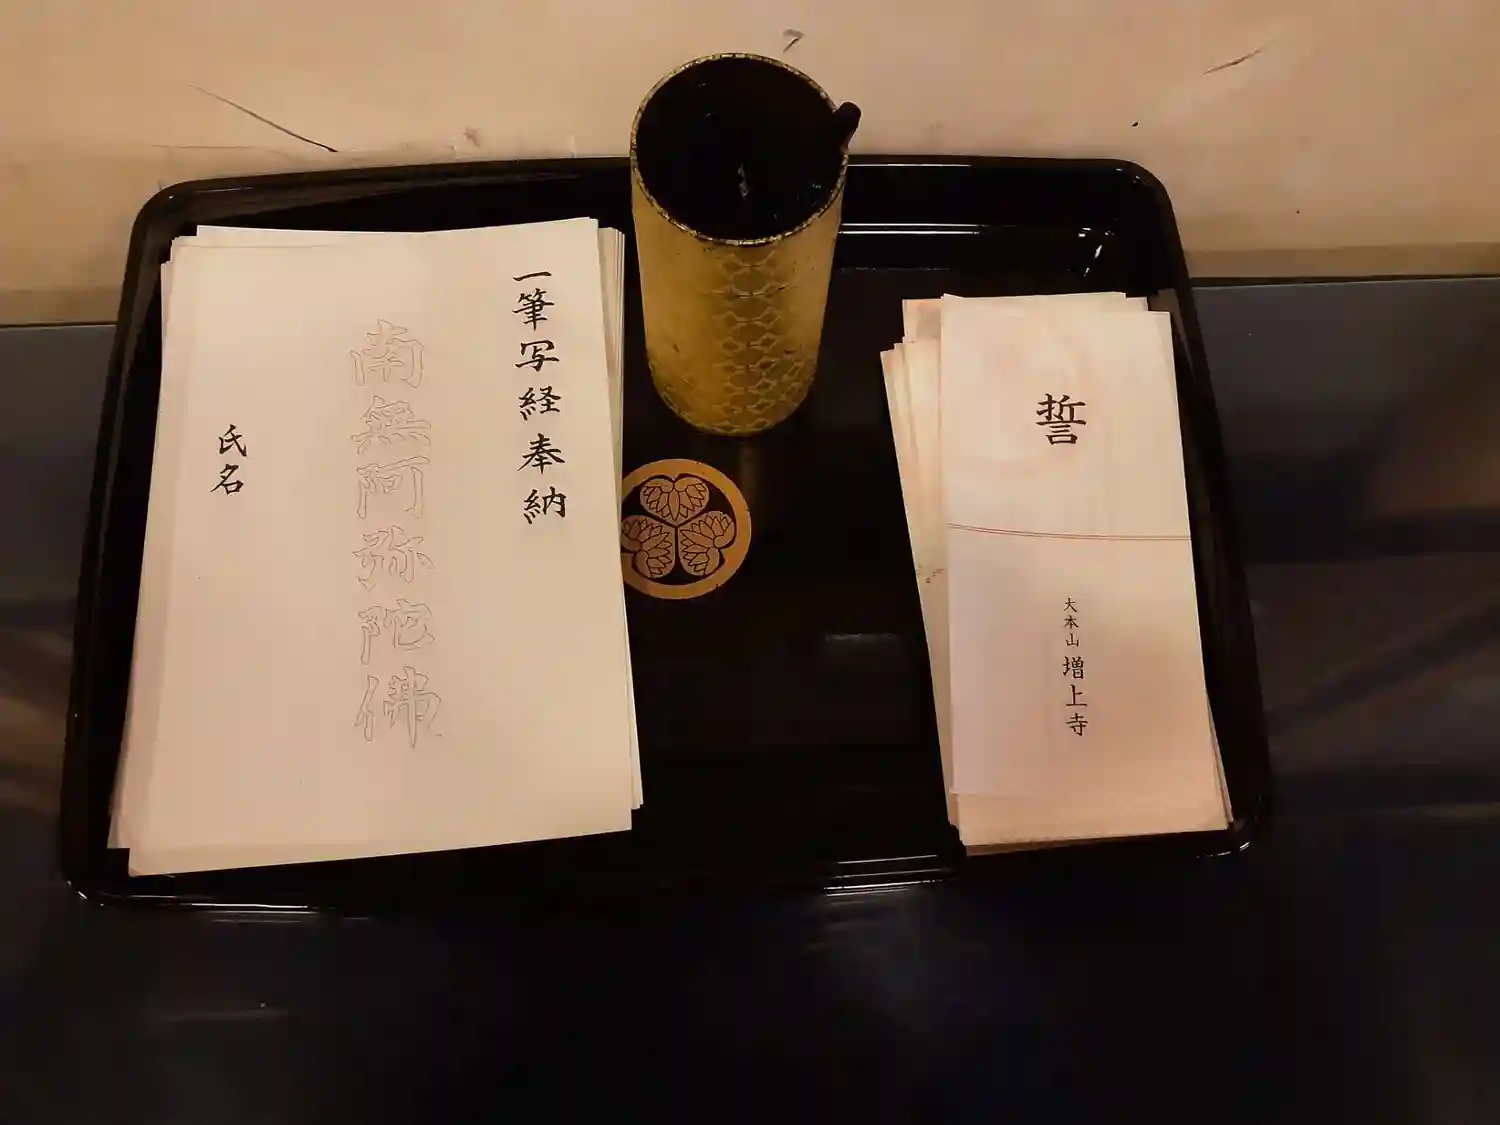 一筆写経奉納
南無阿弥陀佛
氏名
誓
大本山 増上寺